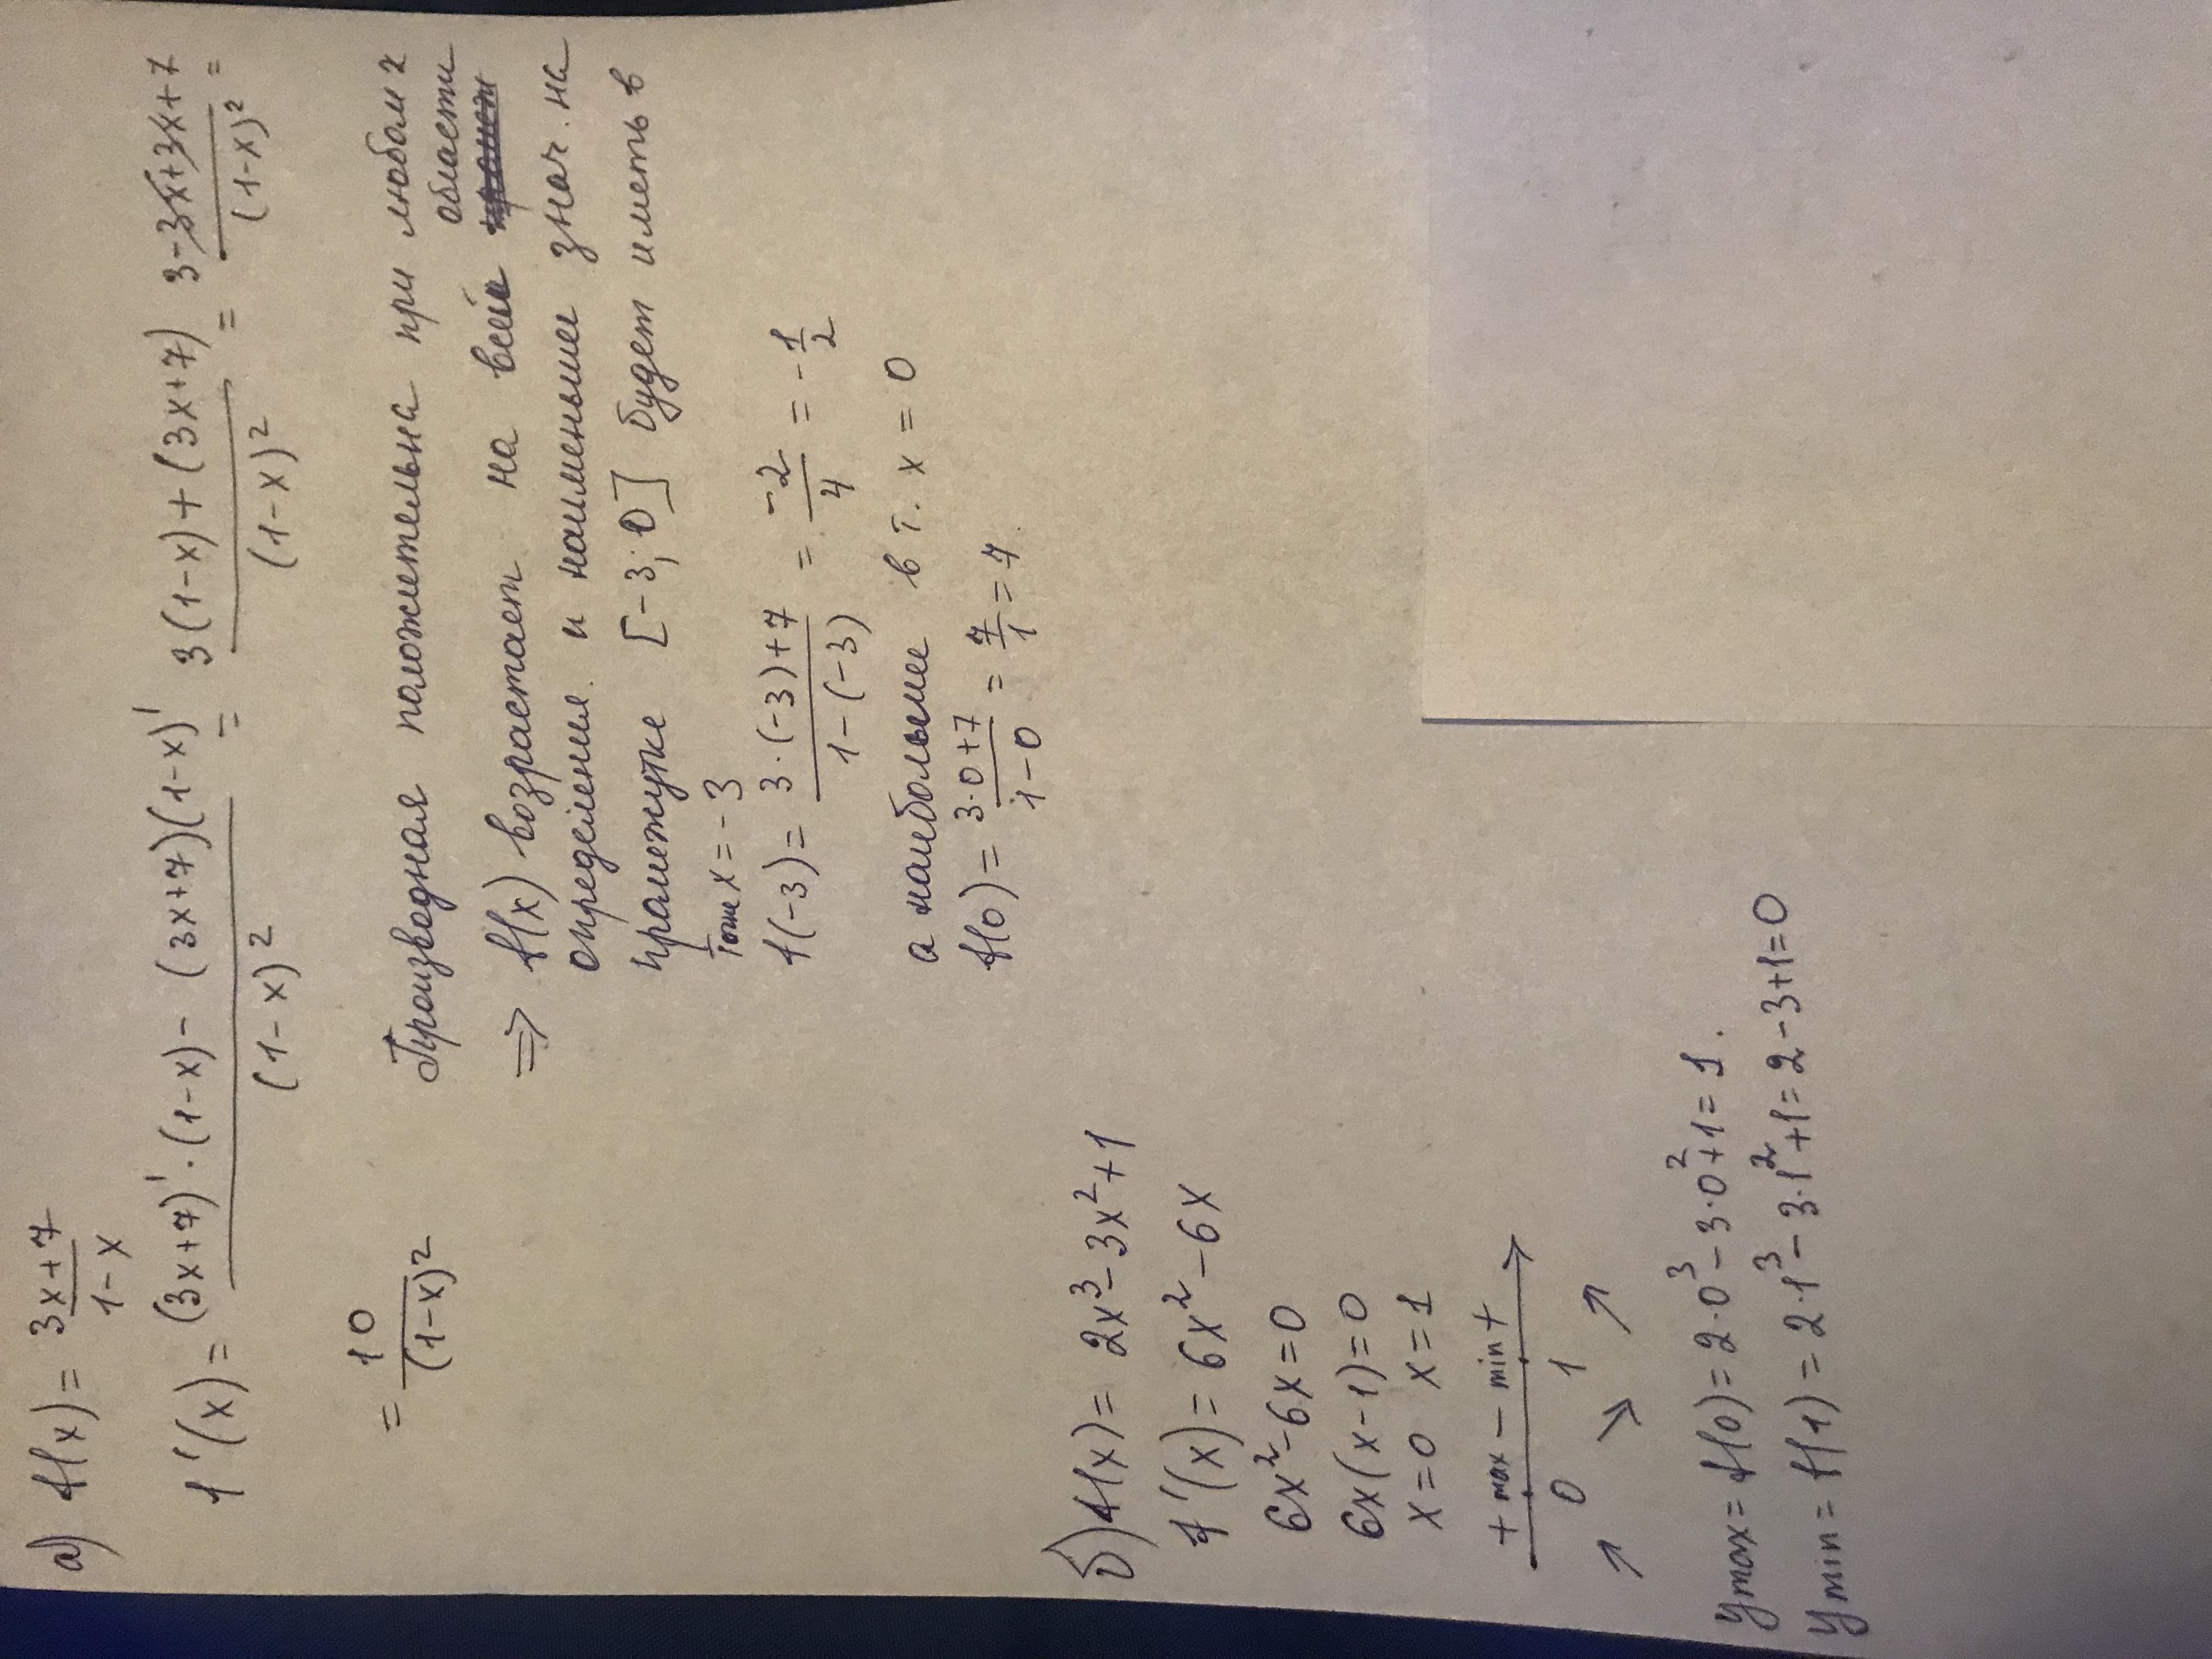 а) f(x) = (3x+7)/(1-x)
f'(x) = ((3x+7)'·(1-x) - (3x+7)(1-x)')/(1-x)² = (3(1-x)+(3x+7))/(1-x)² = (3-3x+3x+7)/(1-x)² =
= 10/(1-x)²
Производная положительна при любом x
⇒ f(x) возрастает на всей области
определения. и наименьшее знач. на
промежутке [-3; 0] будет иметь в
точке x = -3
f(-3) = (3·(-3)+7)/(1-(-3)) = -2/4 = -1/2
а наибольшее в т. x = 0
f(0) = (3·0+7)/(1-0) = 7/1 = 7.
б) f(x) = 2x³-3x²+1
f'(x) = 6x²-6x
6x²-6x=0
6x(x-1)=0
x=0 x=1
+ max - min +
0 1
↗ ↘ ↗
y max = f(0) = 2·0³-3·0²+1=1.
y min = f(1) = 2·1³-3·1²+1=2-3+1=0